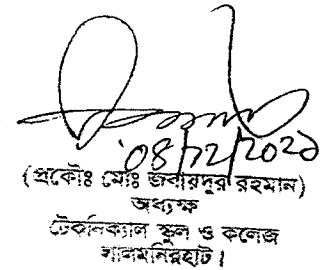 08/12/2020
(প্রকৌঃ মোঃ জবায়দুর রহমান)
অধ্যক্ষ
টেকনিক্যাল স্কুল ও কলেজ
লালমনিরহাট।